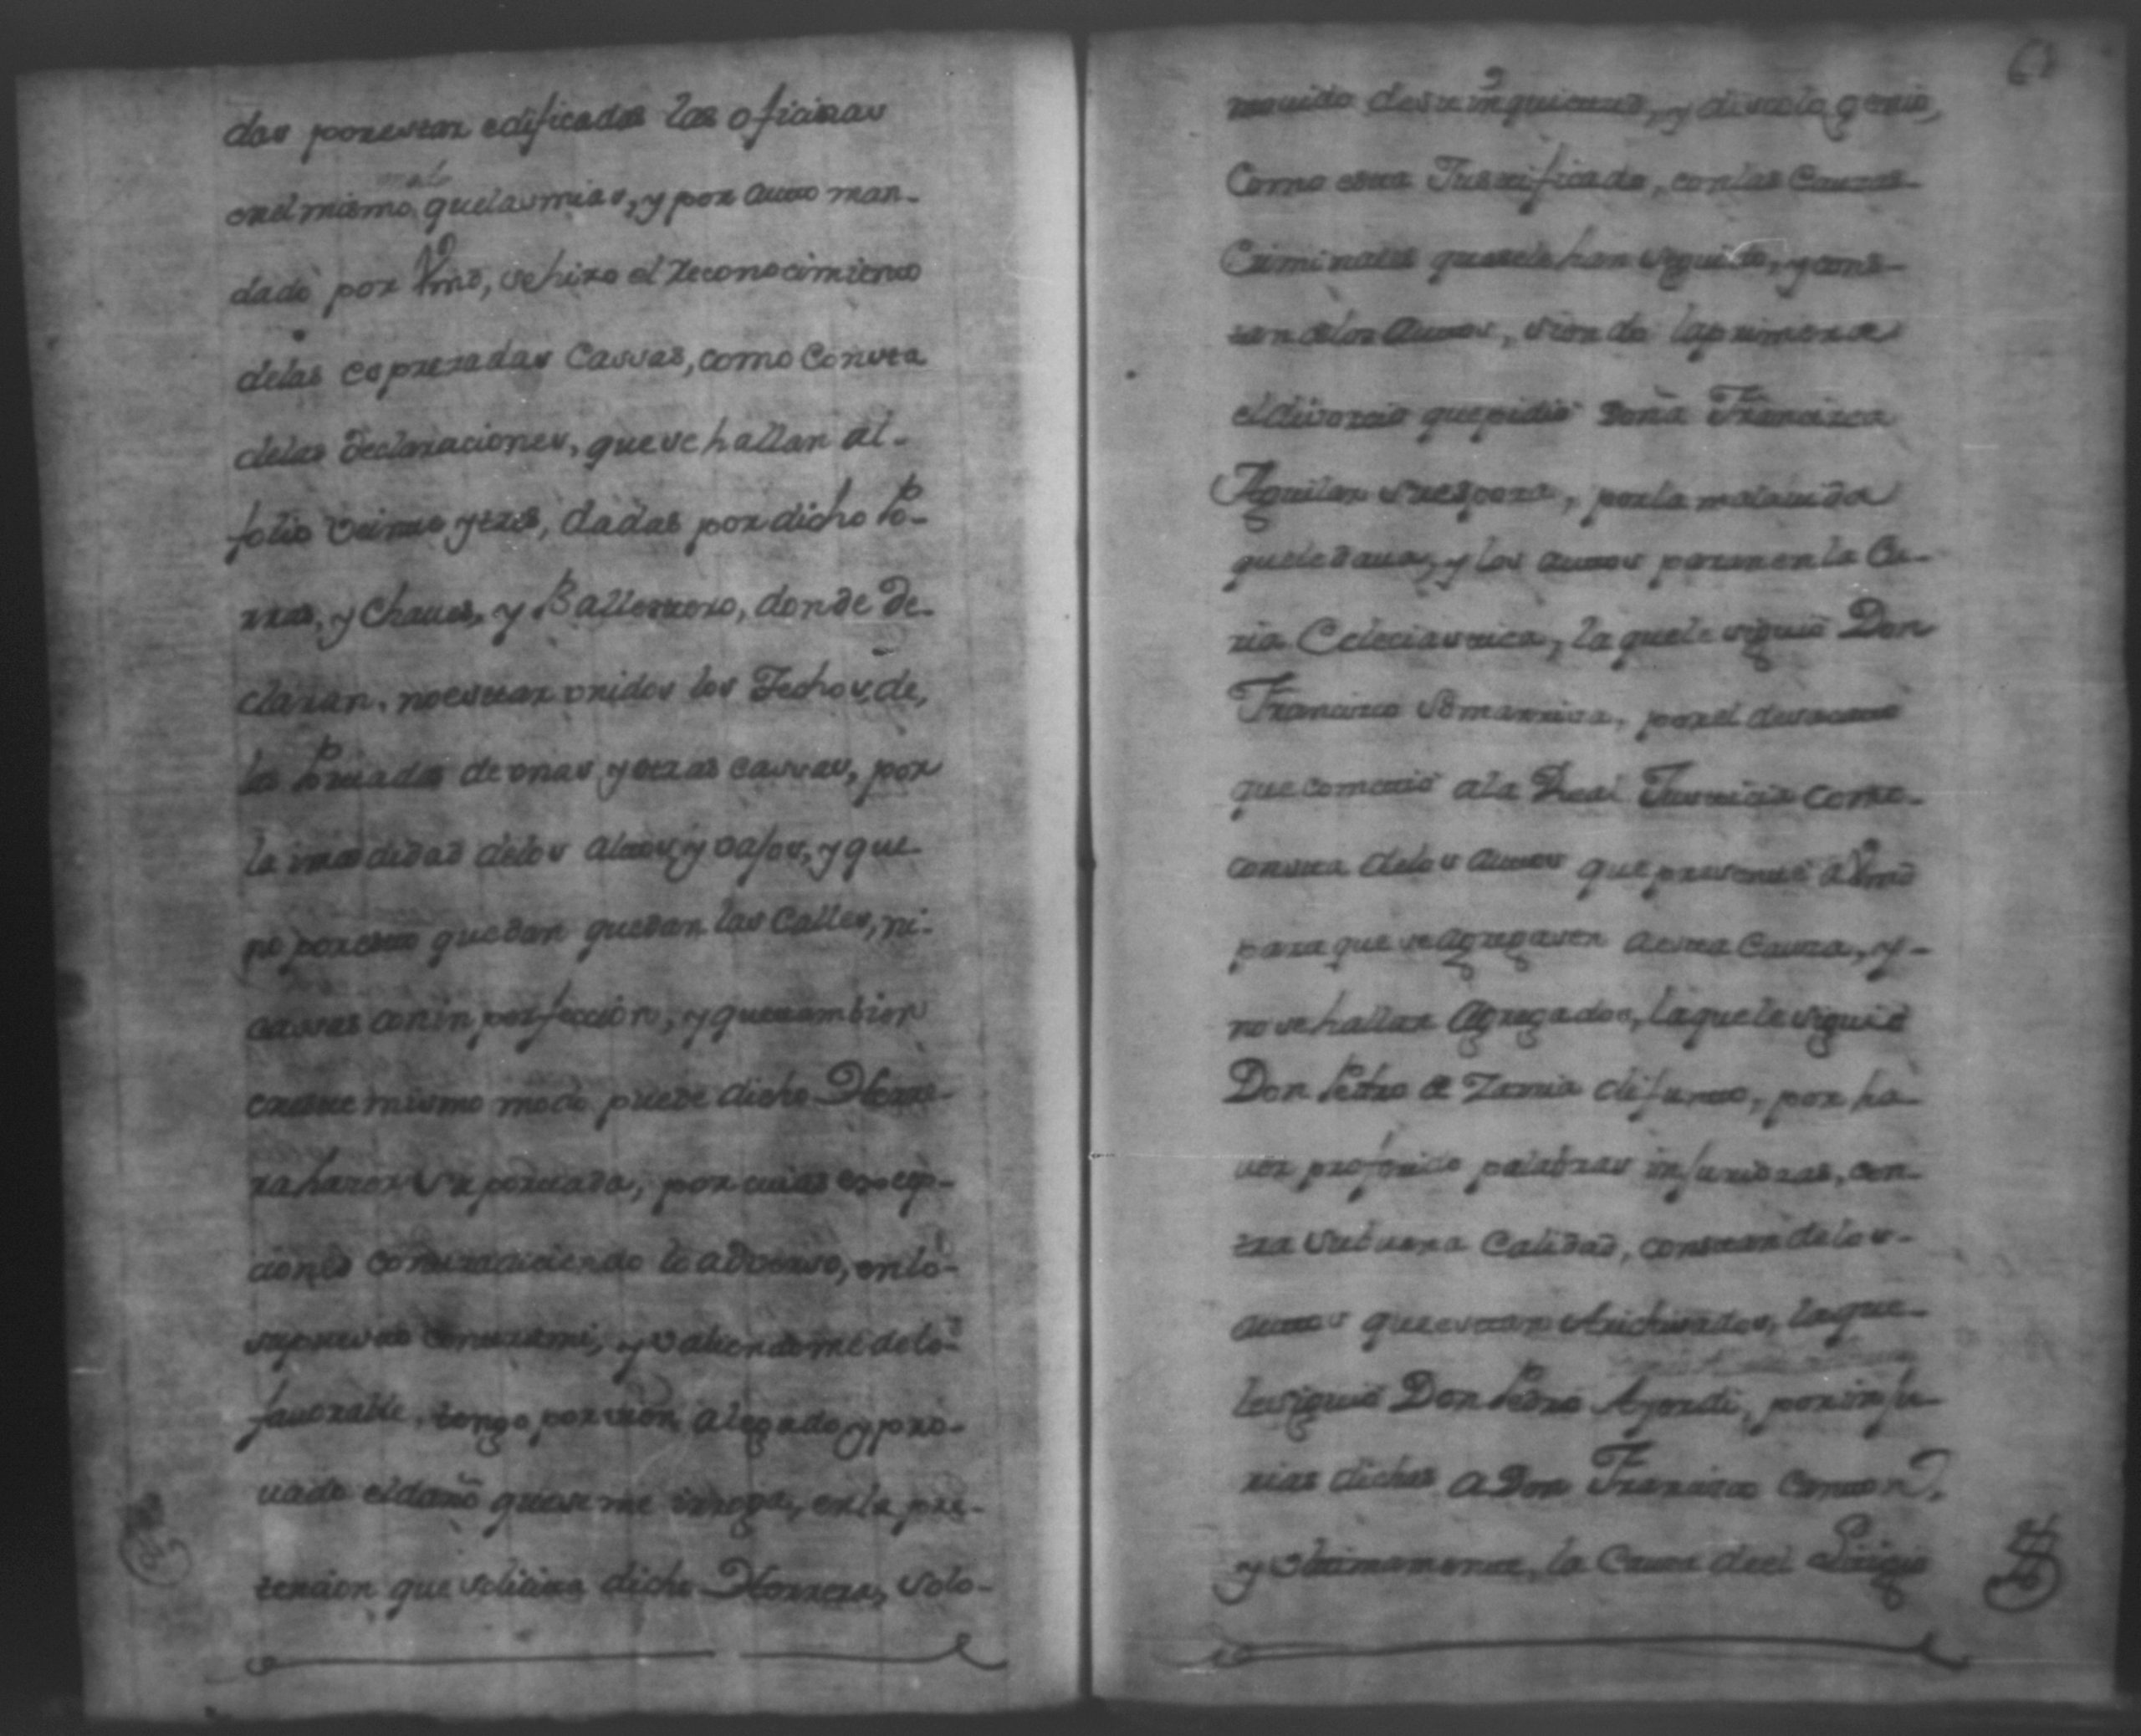 das por estar edificadas las oficinas
en el mismo malo que las mias, y por auto man-
dado por Vmd, se hizo el reconocimiento
de las esprezadas Cassas, como Consta
de las declaraciones, que se hallan al-
folio veinte y tres, dadas por dicho Po-
rras, y Chaues, y Ballesteros, donde De-
claran, no estar vnidos los Techos, de,
las Portadas de vnas y otras cassas, por
la de los altos, y vajos, y que
no por esto quedan quedan las Calles, ni-
cassas con inperfeccion, y que tambien
en este mismo modo puede dicho Herre-
ra hazer su portada, por cuias excep-
ciones contradiciendo lo adverso, en lo-
contra mi, y valiendome de lo-
fauorable, tengo por vien alegado, y pro-
uado el daño que se me irroga, en la pre-
tencion que solicita dicho Herrera, solo-
61
mouido de su inquietud, y discola genio,
Como esta Justificado, con las Cauzas-
Criminales que se le han seguido, y cons-
tan de los autos, siendo la primera
el divorcio que pidio Doña Francisca
Aguilar su espoza, por la mala vida
que le daua, y los autos paran en la Cu-
ria Eclesiastica, la que le siguio Don
Francisco por el desacato
que cometio a la Real Justicia como-
consta de los autos que presente a Vmd
para que se agregasen a esta Cauza, y-
no se hallan Agregados, la que le siguio
Don Pedro de Zamia difunto, por ha-
uer proferido palabras injuriozas, con-
tra su buena Calidad, constan de los-
autos que estan Archivados, la que-
le siguio Don Pedro por inju-
rias dichas a Don Francisco
y vltimamente, la Causa de el